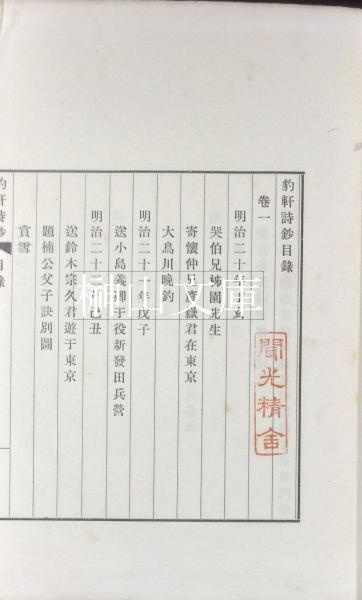 豹軒詩鈔目錄
卷一
明治二十年丁亥
哭伯兄姊園先生
寄懷仲兄彥嶽君在東京
大鳥川晚釣
明治二十一年戊子
送小島義卿于役新發田兵營
明治二十二年己丑
送鈴木宗久君遊于東京
題楠公父子訣別圖
賞雪
豹軒詩鈔 目錄
聞光精舍
山文庫